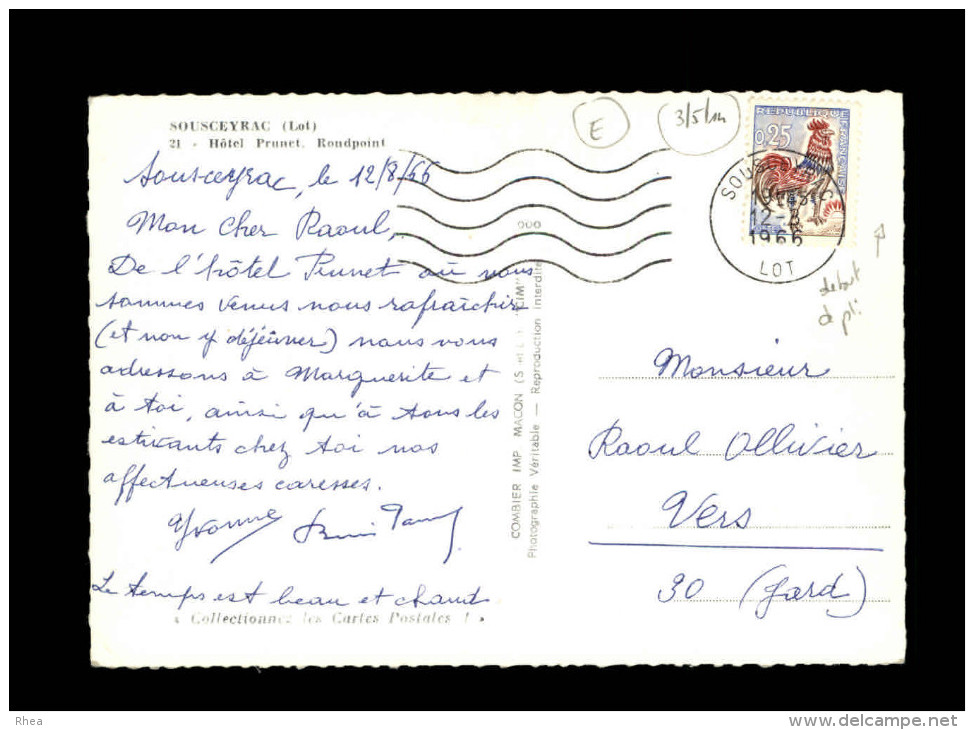 SOUSCEYRAC (Lot)
21 - Hôtel Prunet. Rondpoint
Sousceyrac, le 12/8/66
Mon cher Raoul,
De l'hôtel Prunet où nous
sommes venus nous rafraîchir
(et non y déjeûner) nous vous
adressons à Marguerite et
à toi, ainsi qu'à tous les
estivants chez toi nos
affectueuses caresses.
Yvonne
Le temps est beau et chaud
« Collectionnez les Cartes Postales ! »
COMBIER IMP MACON
Photographie Véritable — Reproduction Interdite
E
3/5/m
REPUBLIQUE FRANÇAISE
0,25
SOUSCEYRAC
12-8
1966
LOT
debut
de pli
Monsieur
Raoul Ollivier
Vers
30 (Gard)
Rhea
www.delcampe.net